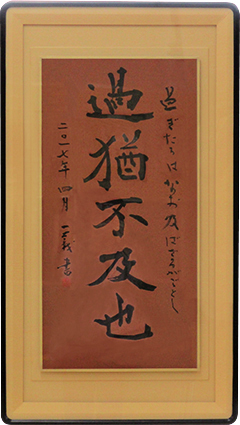 過ぎたるはなお及ばざるがごとし
過猶不及也
二〇一七年 四月 一義書